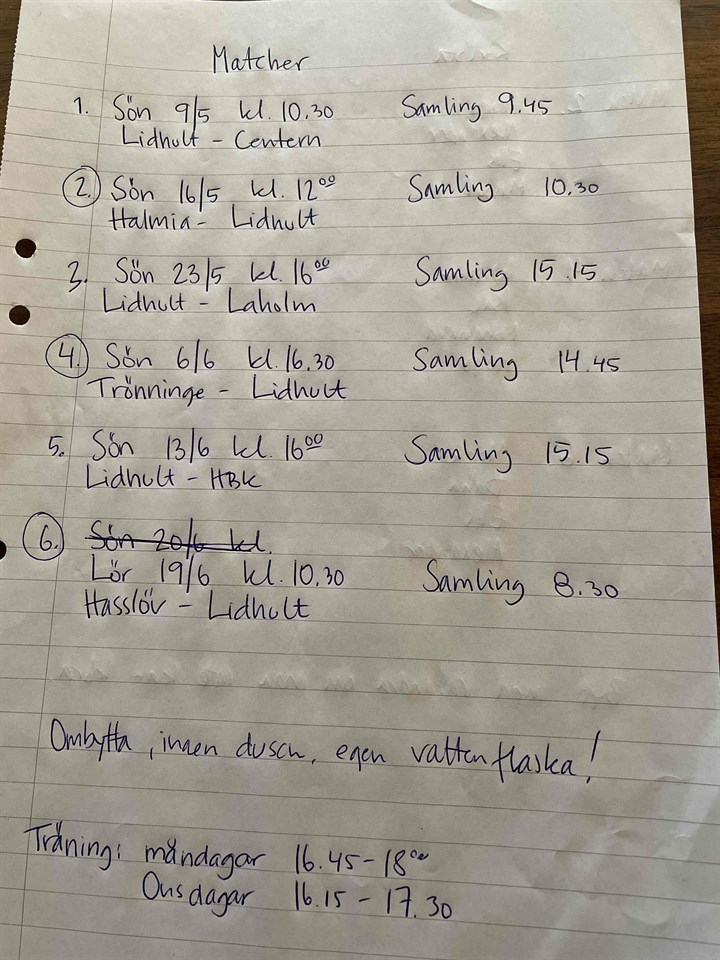 Matcher
1. Sön 9/5 kl. 10.30 Samling 9.45
Lidhult - Centern
2. Sön 16/5 kl. 12⁰⁰ Samling 10.30
Halmia - Lidhult
3. Sön 23/5 kl. 16⁰⁰ Samling 15.15
Lidhult - Laholm
4. Sön 6/6 kl. 16.30 Samling 14.45
Trönninge - Lidhult
5. Sön 13/6 kl. 16⁰⁰ Samling 15.15
Lidhult - HBK
6. Sön 20/6 kl.
Lör 19/6 kl. 10.30 Samling 8.30
Hasslöv - Lidhult
Ombytta, ingen dusch, egen vattenflaska!
Träning: måndagar 16.45 - 18⁰⁰
Onsdagar 16.15 - 17.30